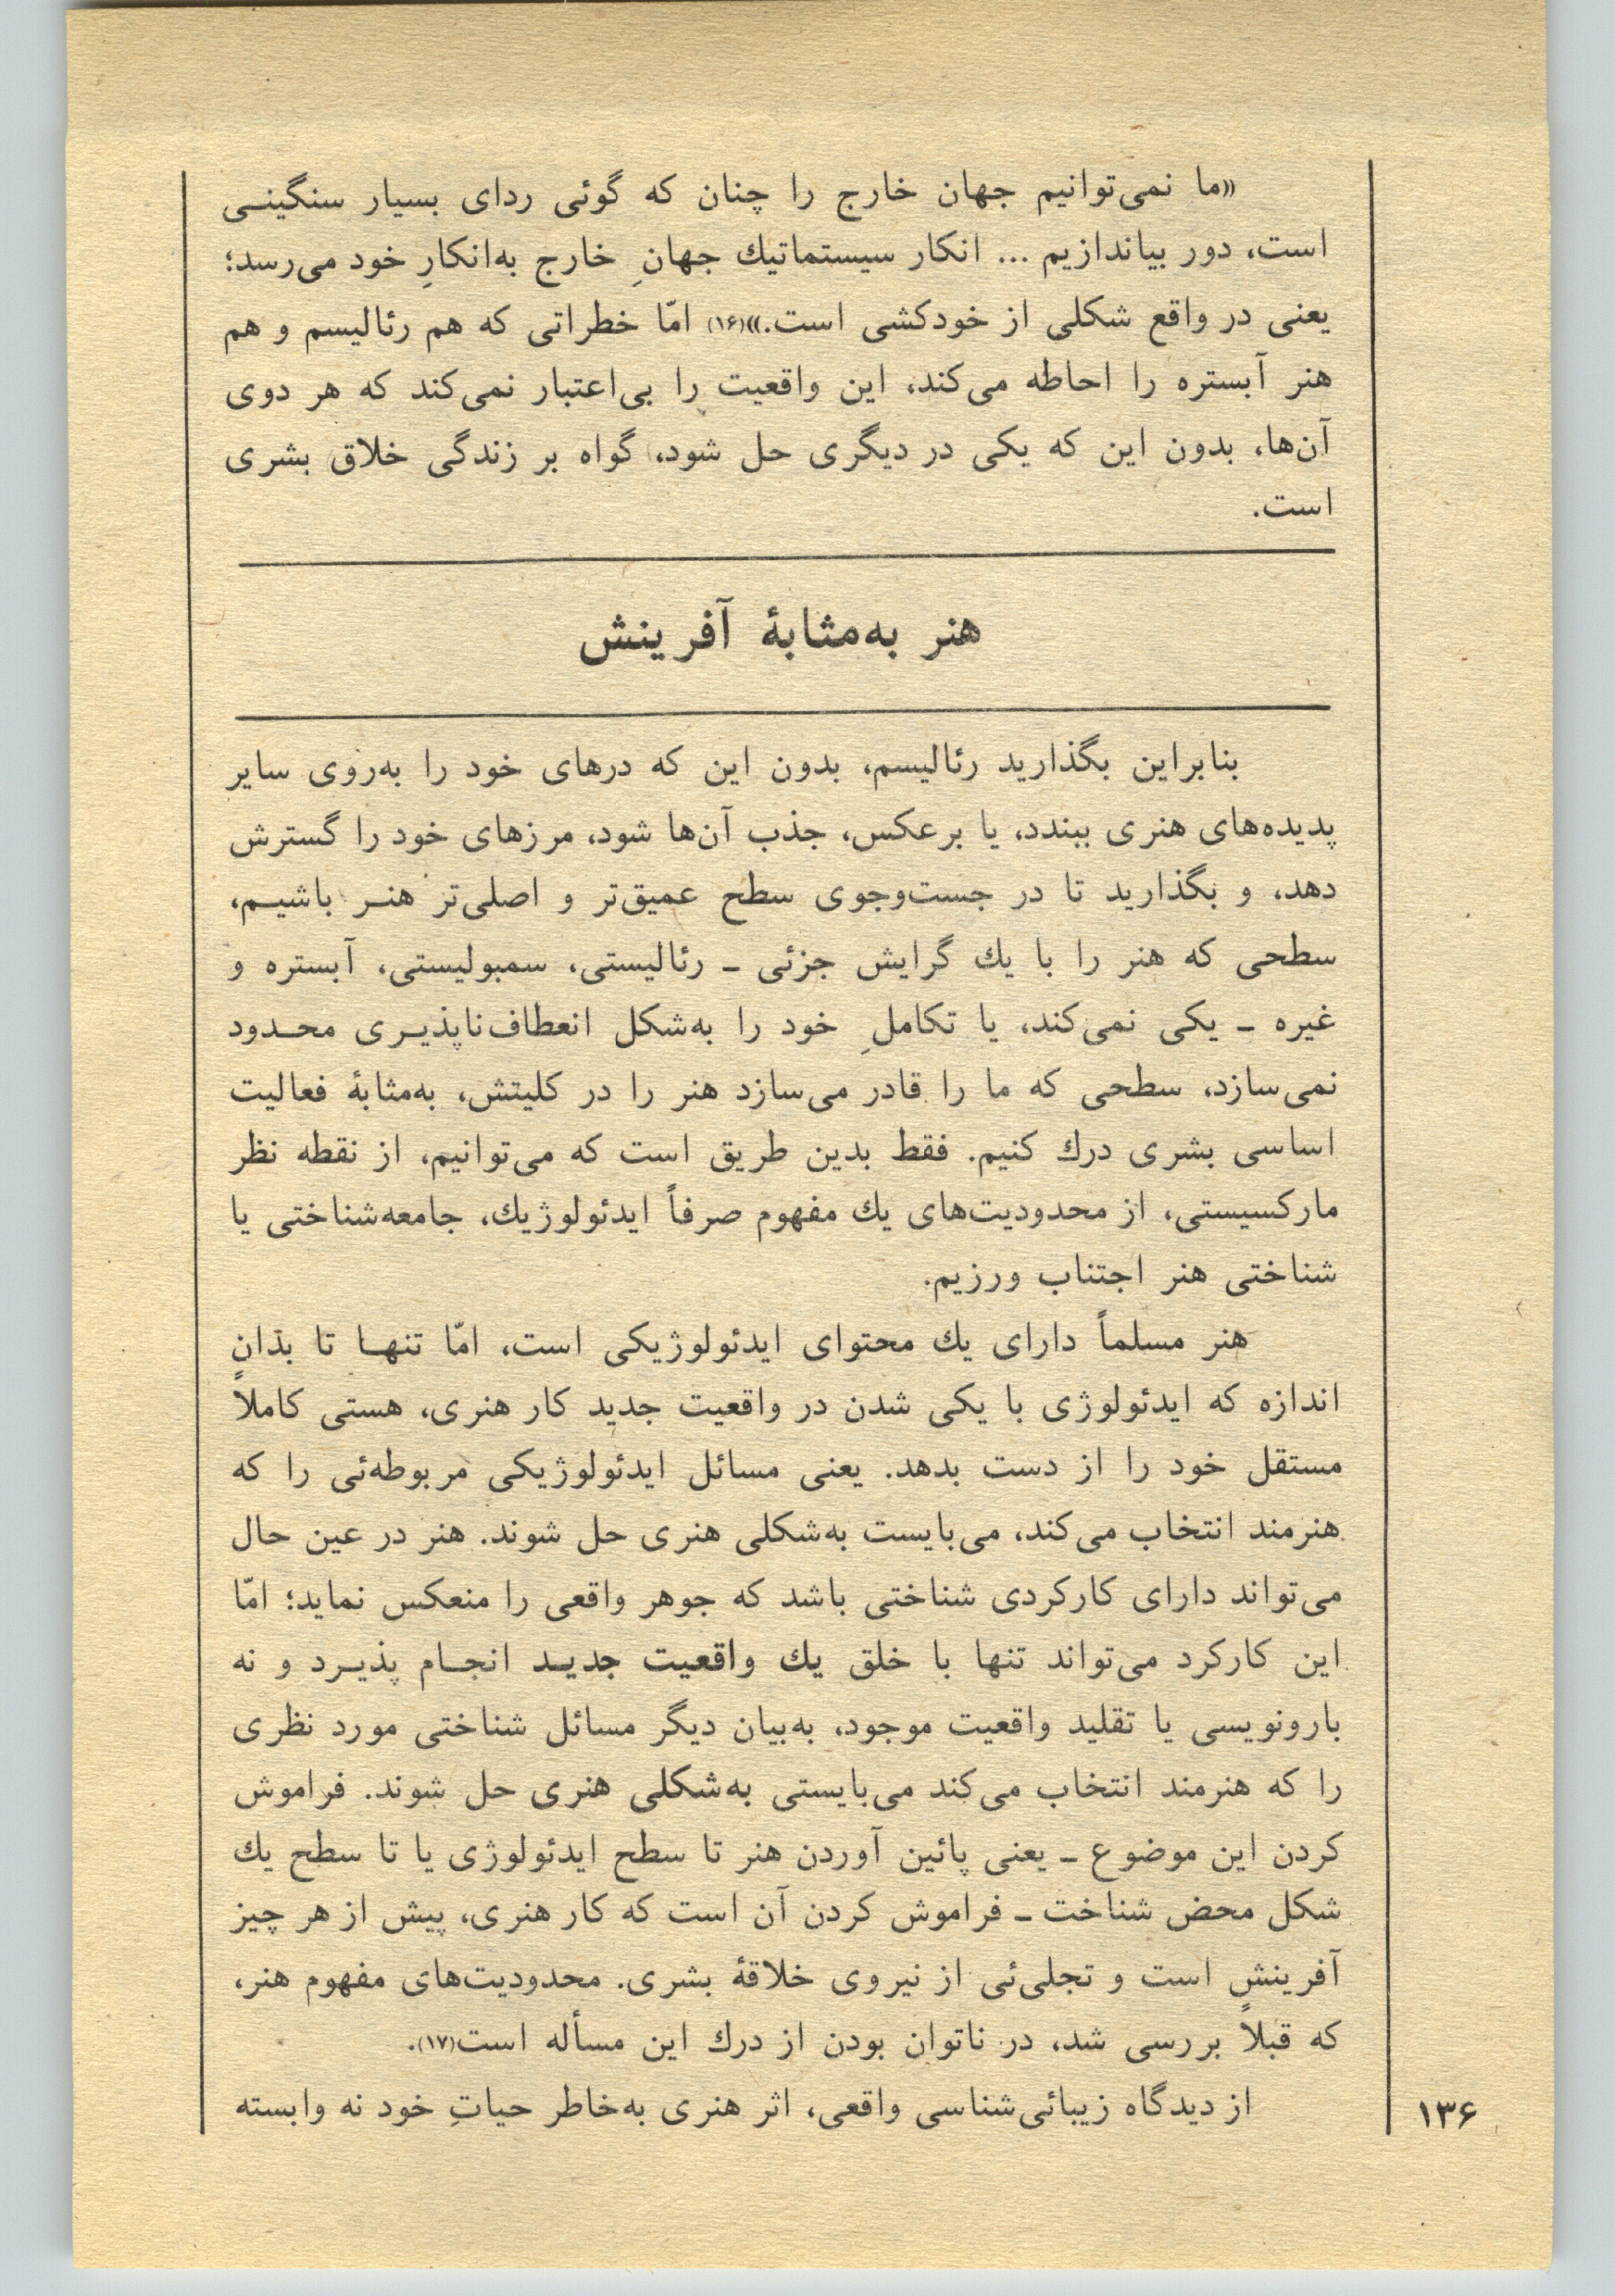 «ما نمی‌توانیم جهان خارج را چنان که گوئی ردای بسیار سنگینی
است، دور بیاندازیم ... انکار سیستماتیك جهانِ خارج به‌انکارِ خود می‌رسد؛
یعنی در واقع شکلی از خودکشی است.»(۱۶) امّا خطراتی که هم رئالیسم و هم
هنر آبستره را احاطه می‌کند، این واقعیت را بی‌اعتبار نمی‌کند که هر دوی
آن‌ها، بدون این که یکی در دیگری حل شود، گواه بر زندگی خلاق بشری
است.
هنر به‌مثابهٔ آفرینش
بنابراین بگذارید رئالیسم، بدون این که درهای خود را به‌روی سایر
پدیده‌های هنری ببندد، یا برعکس، جذب آن‌ها شود، مرزهای خود را گسترش
دهد، و بگذارید تا در جست‌وجوی سطح عمیق‌تر و اصلی‌تر هنر باشیم،
سطحی که هنر را با یك گرایش جزئی ـ رئالیستی، سمبولیستی، آبستره و
غیره ـ یکی نمی‌کند، یا تکاملِ خود را به‌شکل انعطاف‌ناپذیری محدود
نمی‌سازد، سطحی که ما را قادر می‌سازد هنر را در کلیتش، به‌مثابهٔ فعالیت
اساسی بشری درك کنیم. فقط بدین طریق است که می‌توانیم، از نقطه نظر
مارکسیستی، از محدودیت‌های یك مفهوم صرفاً ایدئولوژیك، جامعه‌شناختی یا
شناختی هنر اجتناب ورزیم.
هنر مسلماً دارای یك محتوای ایدئولوژیکی است، امّا تنها تا بدان
اندازه که ایدئولوژی با یکی شدن در واقعیت جدید کار هنری، هستی کاملاً
مستقل خود را از دست بدهد. یعنی مسائل ایدئولوژیکی مربوطه‌ئی را که
هنرمند انتخاب می‌کند، می‌بایست به‌شکلی هنری حل شوند. هنر در عین حال
می‌تواند دارای کارکردی شناختی باشد که جوهر واقعی را منعکس نماید؛ امّا
این کارکرد می‌تواند تنها با خلق یك واقعیت جدید انجام پذیرد و نه
بارونویسی یا تقلید واقعیت موجود، به‌بیان دیگر مسائل شناختی مورد نظری
را که هنرمند انتخاب می‌کند می‌بایستی به‌شکلی هنری حل شوند. فراموش
کردن این موضوع ـ یعنی پائین آوردن هنر تا سطح ایدئولوژی یا تا سطح یك
شکل محض شناخت ـ فراموش کردن آن است که کار هنری، پیش از هر چیز
آفرینش است و تجلی‌ئی از نیروی خلاقهٔ بشری. محدودیت‌های مفهوم هنر،
که قبلاً بررسی شد، در ناتوان بودن از درك این مسأله است(۱۷).
از دیدگاه زیبائی‌شناسی واقعی، اثر هنری به‌خاطر حیاتِ خود نه وابسته
۱۳۶